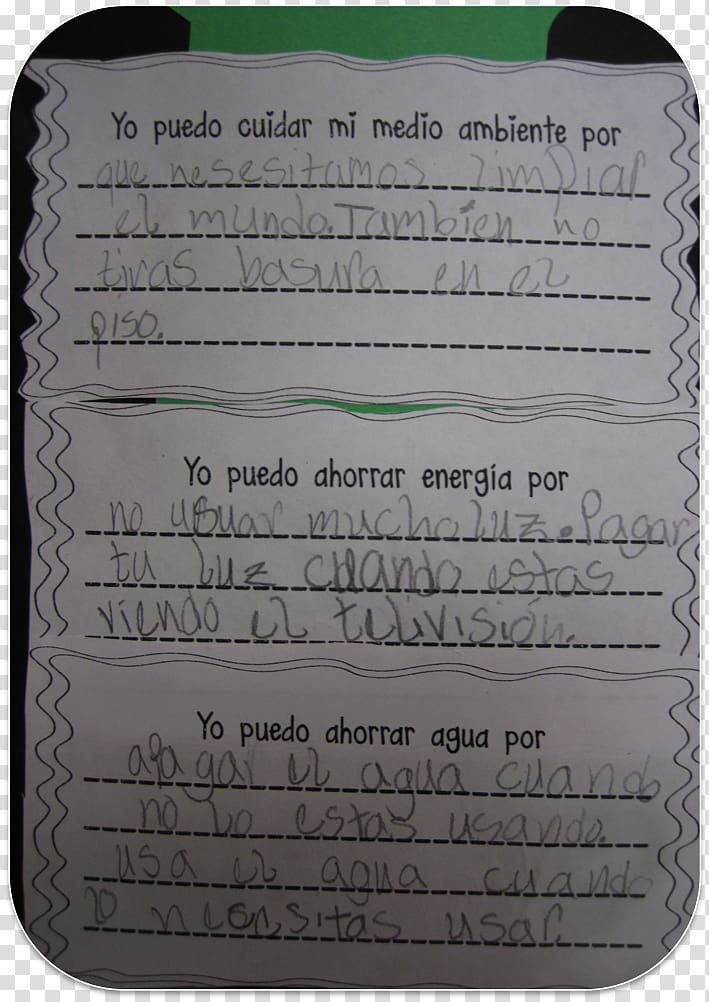 Yo puedo cuidar mi medio ambiente por
que nesesitamos limpiar
el mundo. Tambien no
tiras basura en el
piso.
Yo puedo ahorrar energía por
no usuar mucho luz. Pagar
tu luz cuando estas
viendo el televisión.
Yo puedo ahorrar agua por
apagar el agua cuando
no lo estas usando.
usa el agua cuando
lo necesitas usar.